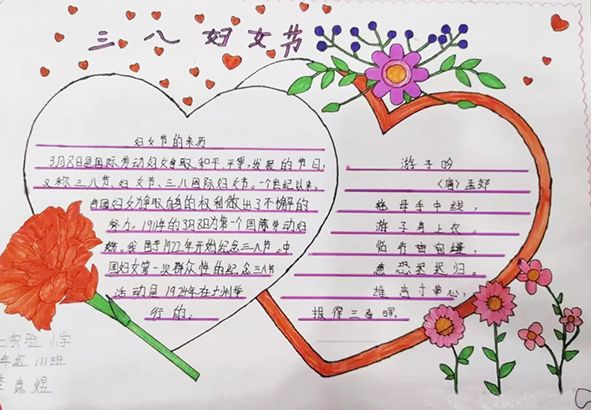 三八妇女节
妇女节的来历
3月8日是国际劳动妇女争取和平、平等、发展的节日,
又称三八节、妇女节、三八国际妇女节。一个世纪以来,
各国妇女为争取自身的权利做出了不懈的
努力。1911年的3月8日为第一个国际劳动妇
女节。我国于1922年开始纪念三八节。中
国妇女第一次群众性的纪念三八节
活动是1924年在广州举
行的。
游子吟
(唐)孟郊
慈母手中线,
游子身上衣。
临行密密缝,
意恐迟迟归。
谁言寸草心,
报得三春晖
实验小学
年级 班
煜